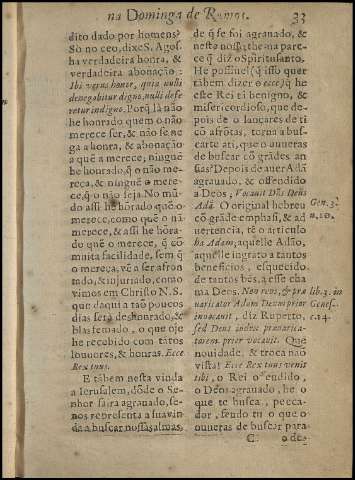 na Dominga de Ramos. 33
dito dado por homens?
Sò no ceo, dixe S. Agos.
ha verdadeira honra, &
verdadeira abonação:
Ibi verus honor, quia nulli
denegabitur digno, nulli defe-
retur indigno. Porq̃ là não
he honrado quem o não
merece ser, & não se ne
ga a honra, & abonação
a quẽ a merece, ninguẽ
he honrado, q̃ o não me-
reça, & ninguẽ o mere-
ce, q̃ o não seja. No mũ-
do assi he hõrado quẽ o
merece, como quẽ o nã-
merece, & assi he hõra-
do quẽ o merece, q̃ cõ
muita facilidade, sem q̃
o mereça, vẽ a ser afron
tado, & injuriado, como
vimos em Christo N. S.
que daqui a taõ poucos
dias serà deshonrado, &
blasfemado, o que oje
he recebido com tãtos
louuores, & honras. Ecce
Rex tuus.
E tãbem nesta vinda
a Ierusalem, dõde o Se-
nhor saira agrauado, se-
nos representa a sua vin
da a buscar nossas almas,
de q̃ se foi agrauado, &
neste nosso thema pare-
ce q̃ diz o Spiritu santo.
He possiuel (q̃ isso quer
tãbem dizer o ecce) q̃ he
este Rei tã benigno, &
misericordioso, que de-
pois de o lançares de ti
cõ afrõtas, torna a bus-
carte a ti, que o uueras
de buscar cõ grãdes an
sias? Depois de auer Adã
agrauando, & offendido
a Deos, Vocauit Dñs Deus
Adã. O original hebreu
cõ grãde emphasi, & ad
uertencia, tẽ o articulo
ha Adam, aquelle Adão,
aquelle ingrato a tantos
beneficios, esquecido
de tantos bẽs, a esse cha
ma Deos. Non reus, & præ
uaricator Adam Deum prior
inuocauit, diz Ruperto,
sed Deus iudex præuarica-
torem prior vocauit. Que
nouidade, & troca não
vista! Ecce Rex tuus venit
tibi, o Rei offendido,
o Deos agrauado, he o
que te busca, pecca-
dor, sendo tu o que o
uuueras de buscar para-
C o de-
Gen. 3.
n. 10.
lib. 3. in
Genes.
c. 14.